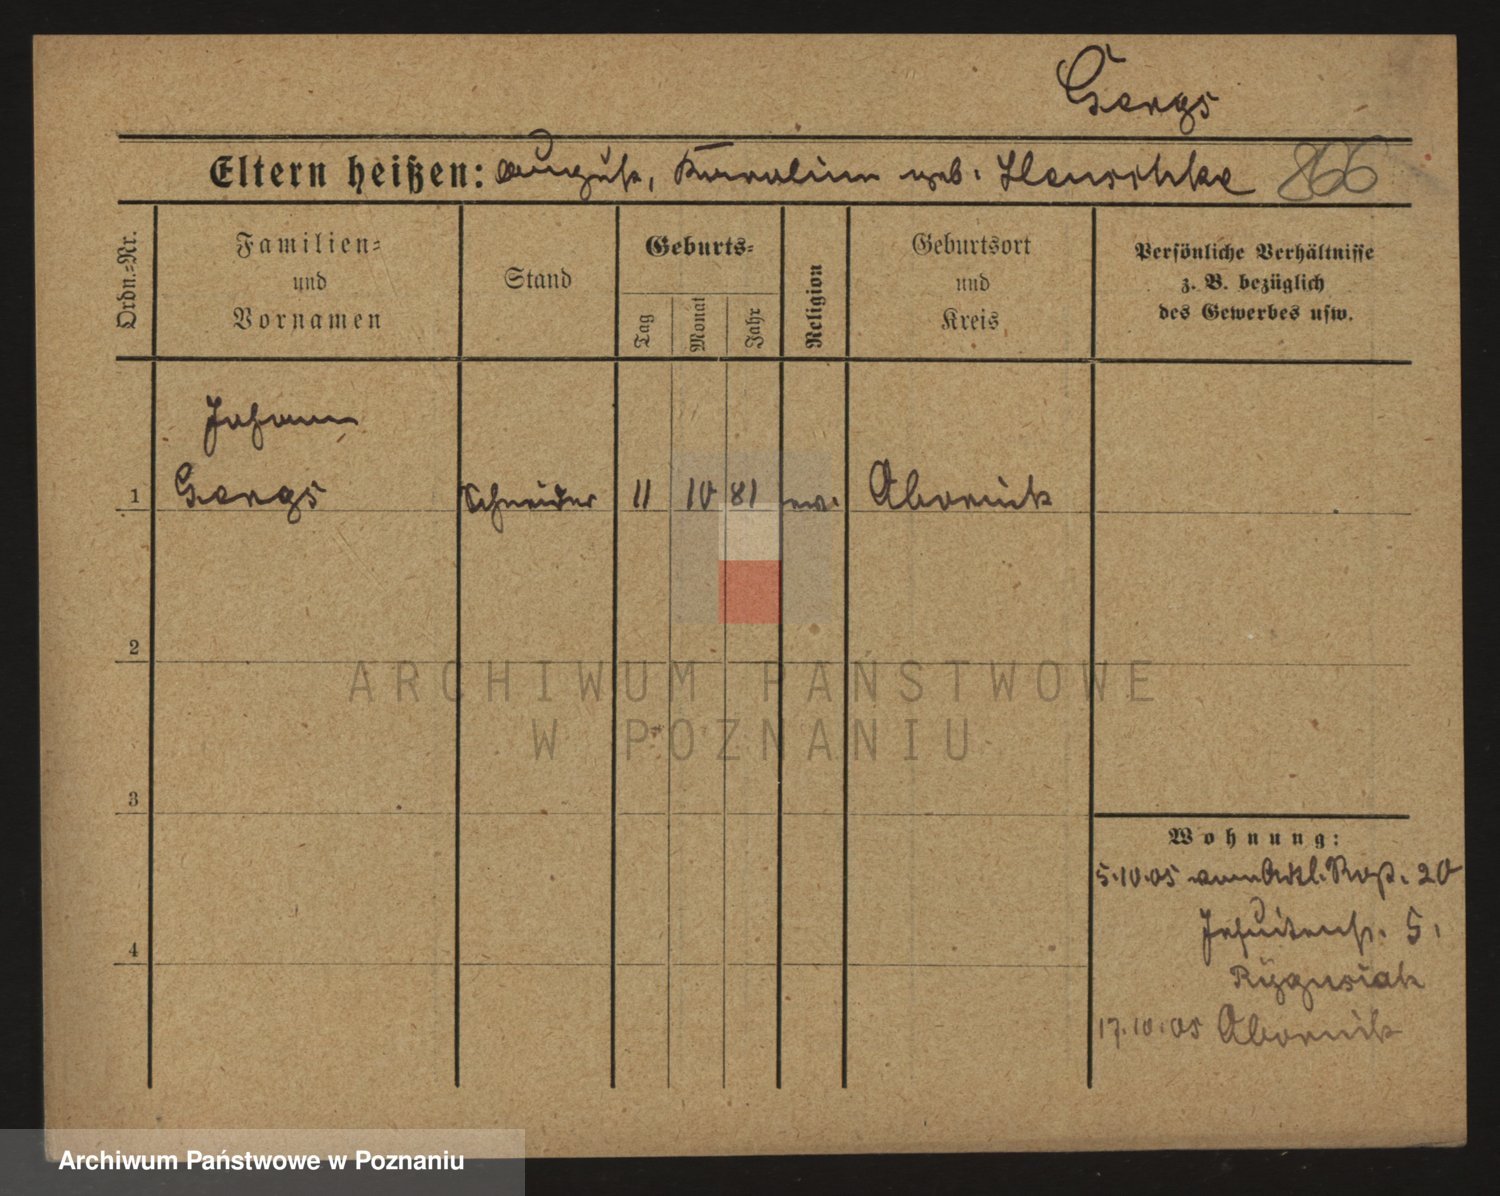 Gergs
Eltern heißen: August, Karoline geb. Henschke 866
Ordn.=Nr.
Familien=
und
Vornamen
Stand
Geburts=
Tag
Monat
Jahr
Religion
Geburtsort
und
Kreis
Persönliche Verhältnisse
z. B. bezüglich
des Gewerbes usw.
Johann
1 Gergs Schneider 11 10 81 ev. Obornik
2
ARCHIWUM PAŃSTWOWE
W POZNANIU
3
Wohnung:
5.10.05 vom 20
Jesuitenstr. 5.
4
17.10.05 Obornik
Archiwum Państwowe w Poznaniu